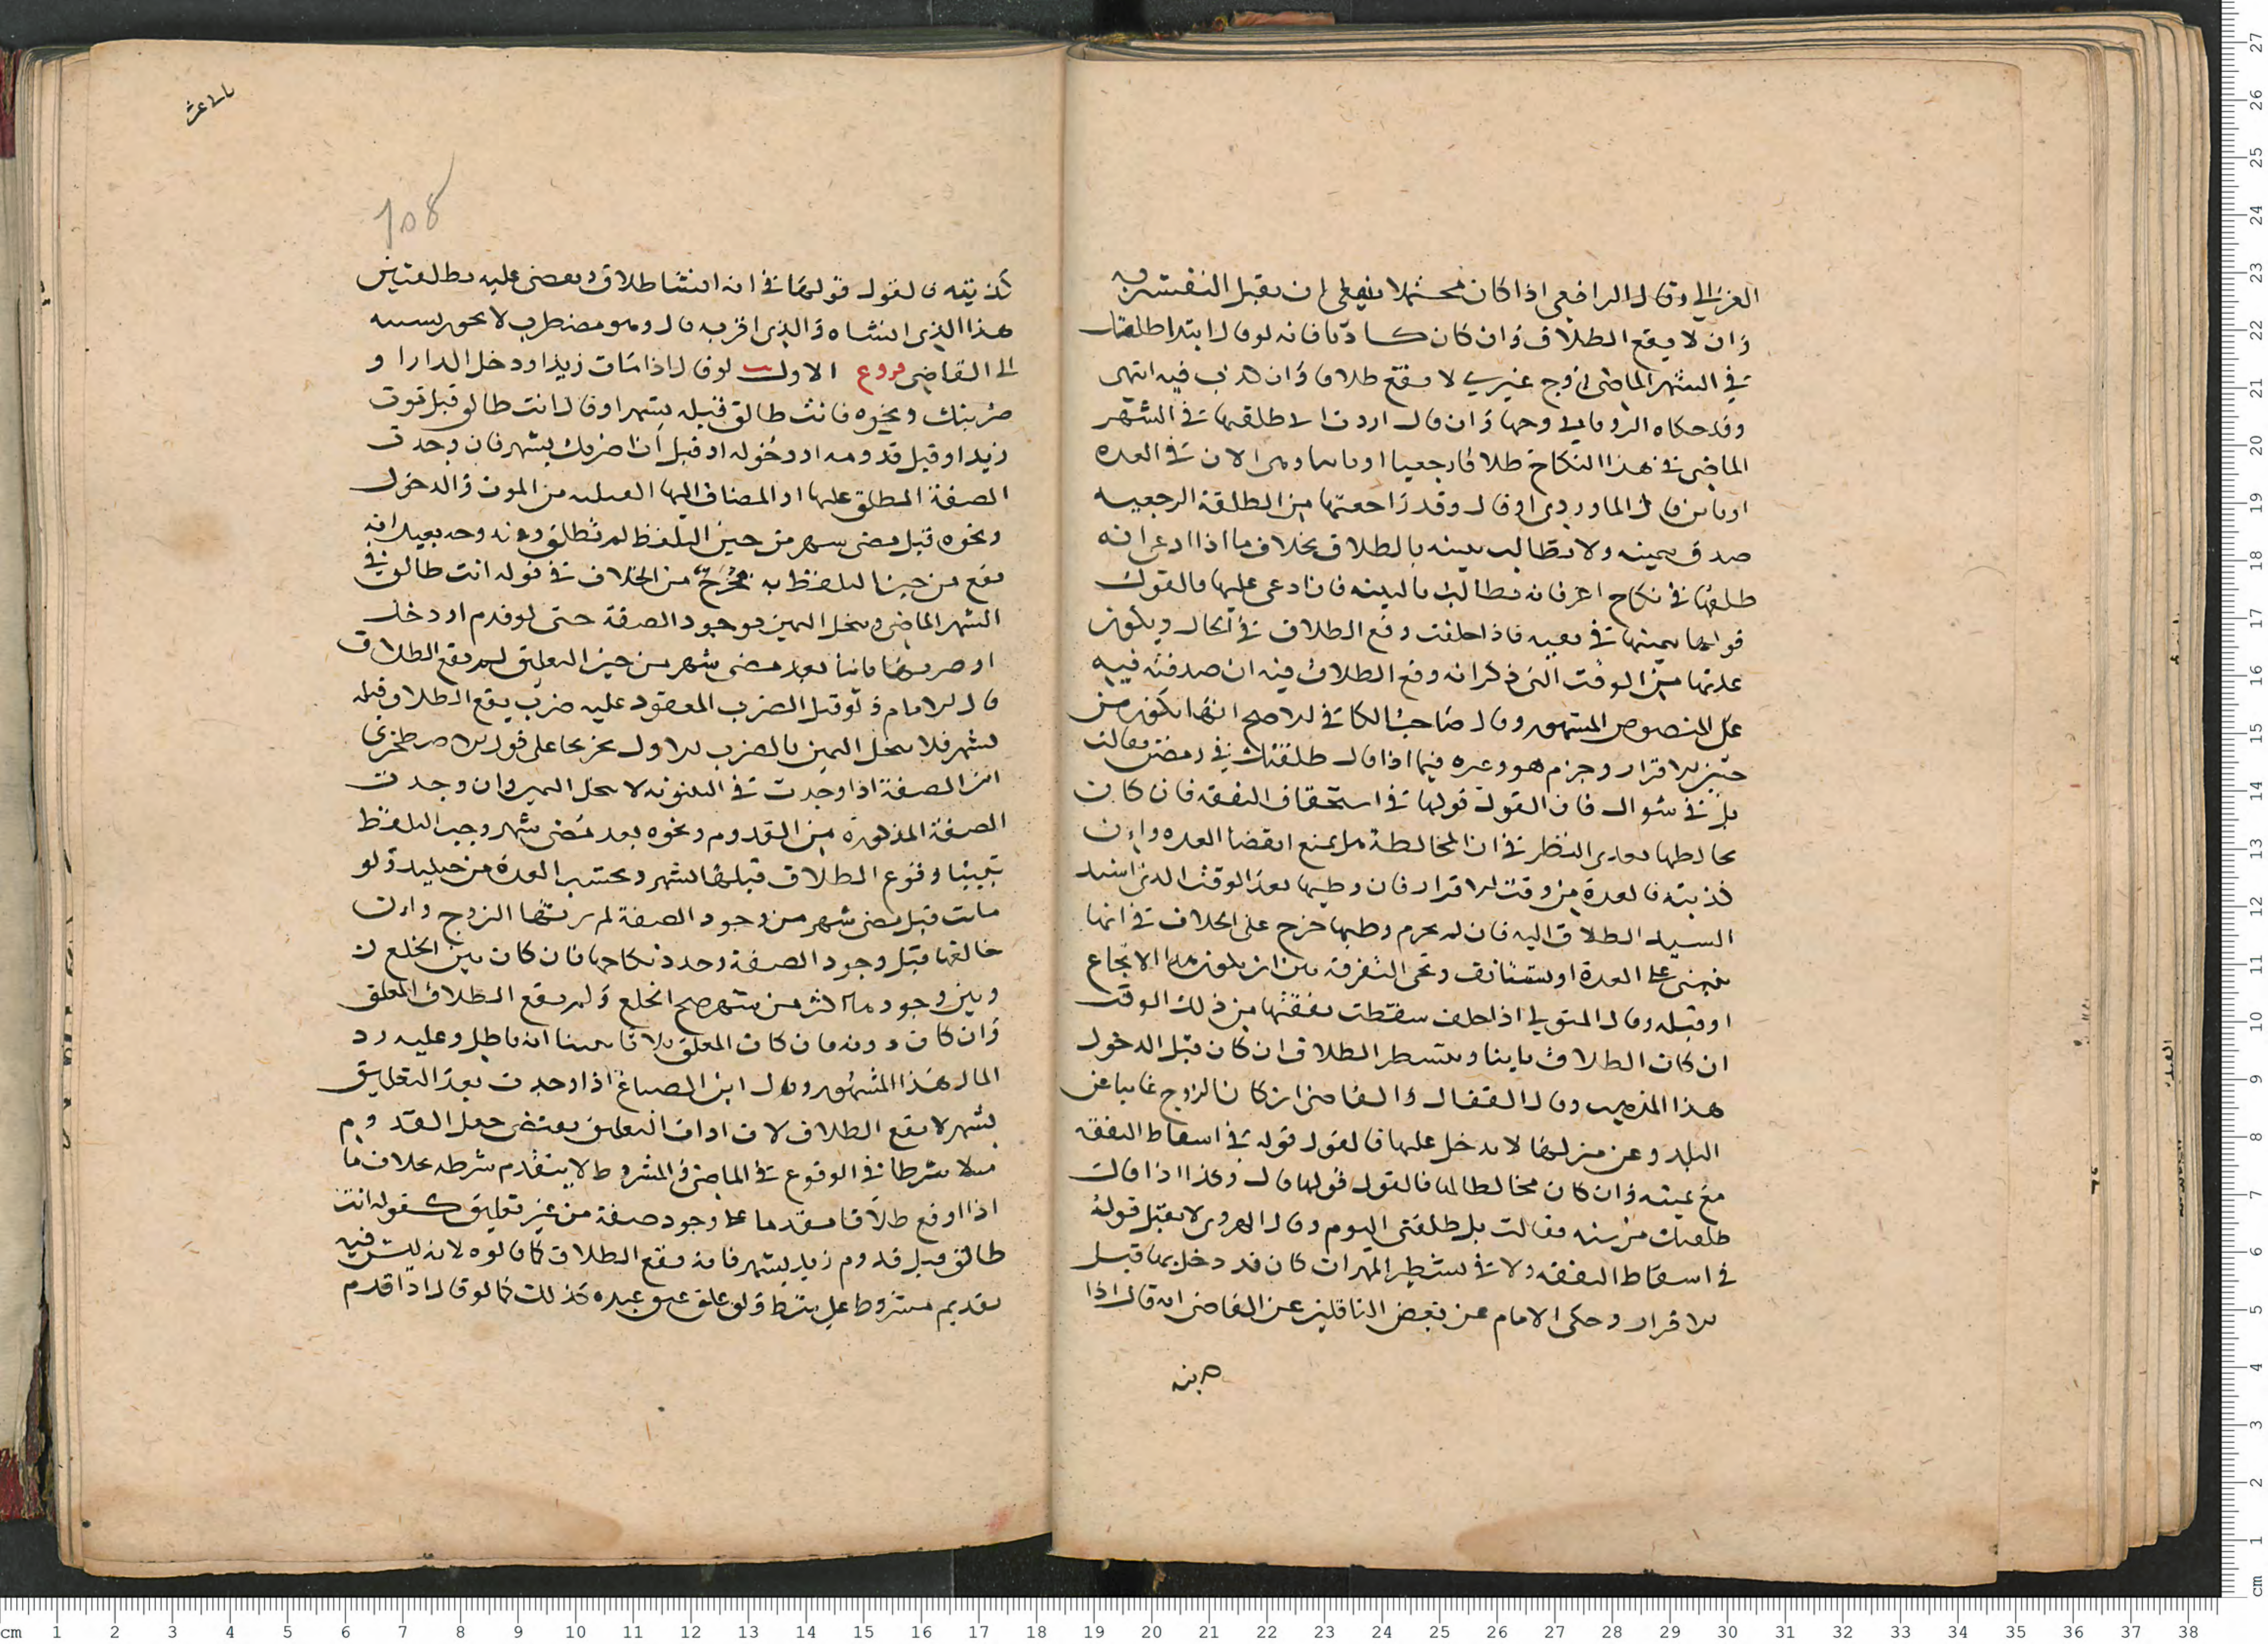 الغزالي وقال الرافعي اذا كان محتملا ينبغي ان يقبل التفسير به
وان لا يقع الطلاق وان كان كاذبا فانه لو قال ابتدا طلقك
في الشهر الماضي زوج غيري لا يقع طلاق وان كذب فيه انتهى
وقد حكاه الروياني وجها وان قال اردت اني طلقتها في الشهر
الماضي في هذا النكاح طلاقا رجعيا او باينا وهي الان في العده
او باين قال الماوردي او قال وقد راجعتها من الطلقة الرجعيه
صدق بيمينه ولا يطالب ببينه بالطلاق بخلاف ما اذا ادعى انه
طلقها في نكاح اخر فانه يطالب بالبينه فان ادعى عليها فالقول
قولها بيمينها في نفيه فاذا حلفت وقع الطلاق في الحال ويكون
عدتها من الوقت الذي ذكر انه وقع الطلاق فيه ان صدقته فيه
على المنصوص المشهور وقال صاحب الكافي الاصح انها تكون من
حين الاقرار وجزم هو وغيره فيما اذا قال طلقتك في رمضان فقالت
بل في شوال فان القول قولها في استحقاق النفقه فان كان
يخالطها بعد النظر في ان المخالطة هل يمنع انقضا العده وان
كذبته فالعدة من وقت الاقرار فان وطيها بعد الوقت الذي اسند
السيد الطلاق اليه فان لم يحرم وطيها خرج على الخلاف في انها
تبني على العدة او تستانف وتجي التفرقه بين ان يكون هذا الاجماع
او قبله وقال المتولي اذا حلف سقطت نفقتها من ذلك الوقت
ان كان الطلاق باينا ويتشطر الطلاق ان كان قبل الدخول
هذا المذهب وقال القفال والقاضي ان كان الزوج غايبا عن
البلد وعن منزلها لا يدخل عليها فالقول قوله في اسقاط النفقه
مع غيبته وان كان مخالطا لها فالقول قولها قال وكذا اذا قال
طلقتك من سنه فقالت بل طلقتني اليوم وقال الهروي لا يقبل قوله
في اسقاط النفقه ولا في تشطير المهر ان كان قد دخل بها قبل
الاقرار وحكى الامام عن بعض الناقلين عن القاضي انه قال اذا
كذبته فالقول قولها في انه انشا طلاق ويقضى عليه بطلقتين
هذا الذي انشاه والذي اقر به قال وهو مضطرب لا يجوز نسبته
الى القاضي فروع الاول لو قال اذا مات زيد او دخل الدار او
ضربتك ونحوه فانت طالق قبله بشهر او قال انت طالق قبل موت
زيد او قبل قدومه او دخوله او قبل ان اضربك بشهر فان وجدت
الصفة المطلق عليها او المضاف اليها القبليه من الموت والدخول
ونحوه قبل مضي شهر من حين التلفظ لم تطلق وفيه وجه بعيد انه
يقع من حين التلفظ به مخرج من الخلاف في قوله انت طالق في
الشهر الماضي وينحل اليمين بوجود الصفة حتى لو قدم او دخل
او ضربها ثانيا بعد مضي شهر من حين التعليق لم يقع الطلاق
قال الامام ولو قبل الضرب المعقود عليه ضرب يقع الطلاق قبله
بشهر فلا ينحل اليمين بالضرب الاول تخريجا على قول الاصطخري
ان الصفة اذا وجدت في البينونه لا ينحل اليمين وان وجدت
الصفة المذكورة من القدوم ونحوه بعد مضي شهر وجب التلفظ
تبينا وقوع الطلاق قبلها بشهر ويحتسب العدة من حينيد ولو
مات قبل مضي شهر من وجود الصفة لم يرثها الزوج وان
خالعها قبل وجود الصفة وجدد نكاحها فان كان بين الخلع
وبين وجودها اكثر من شهر صح الخلع ولم يقع الطلاق المعلق
وان كان دونه فان كان المعلق ثلاثا تبينا انه باطل وعليه رد
المال هذا المشهور وقال ابن الصباغ اذا وجدت بعد التعليق
بشهر لا يقع الطلاق لان ادات التعليق يقتضي جعل القدوم
مثلا شرطا في الوقوع في الماضي والمشروط لا يتقدم شرطه بخلاف ما
اذا اوقع طلاقا مقدما على وجود صفة من غير تعليق كقوله انت
طالق قبل قدوم زيد بشهر فانه يقع الطلاق كما قالوه لانه ليس فيه
تقديم مشروط على شرط ولو علق عتق عبده كذلك كما لو قال اذا قدم